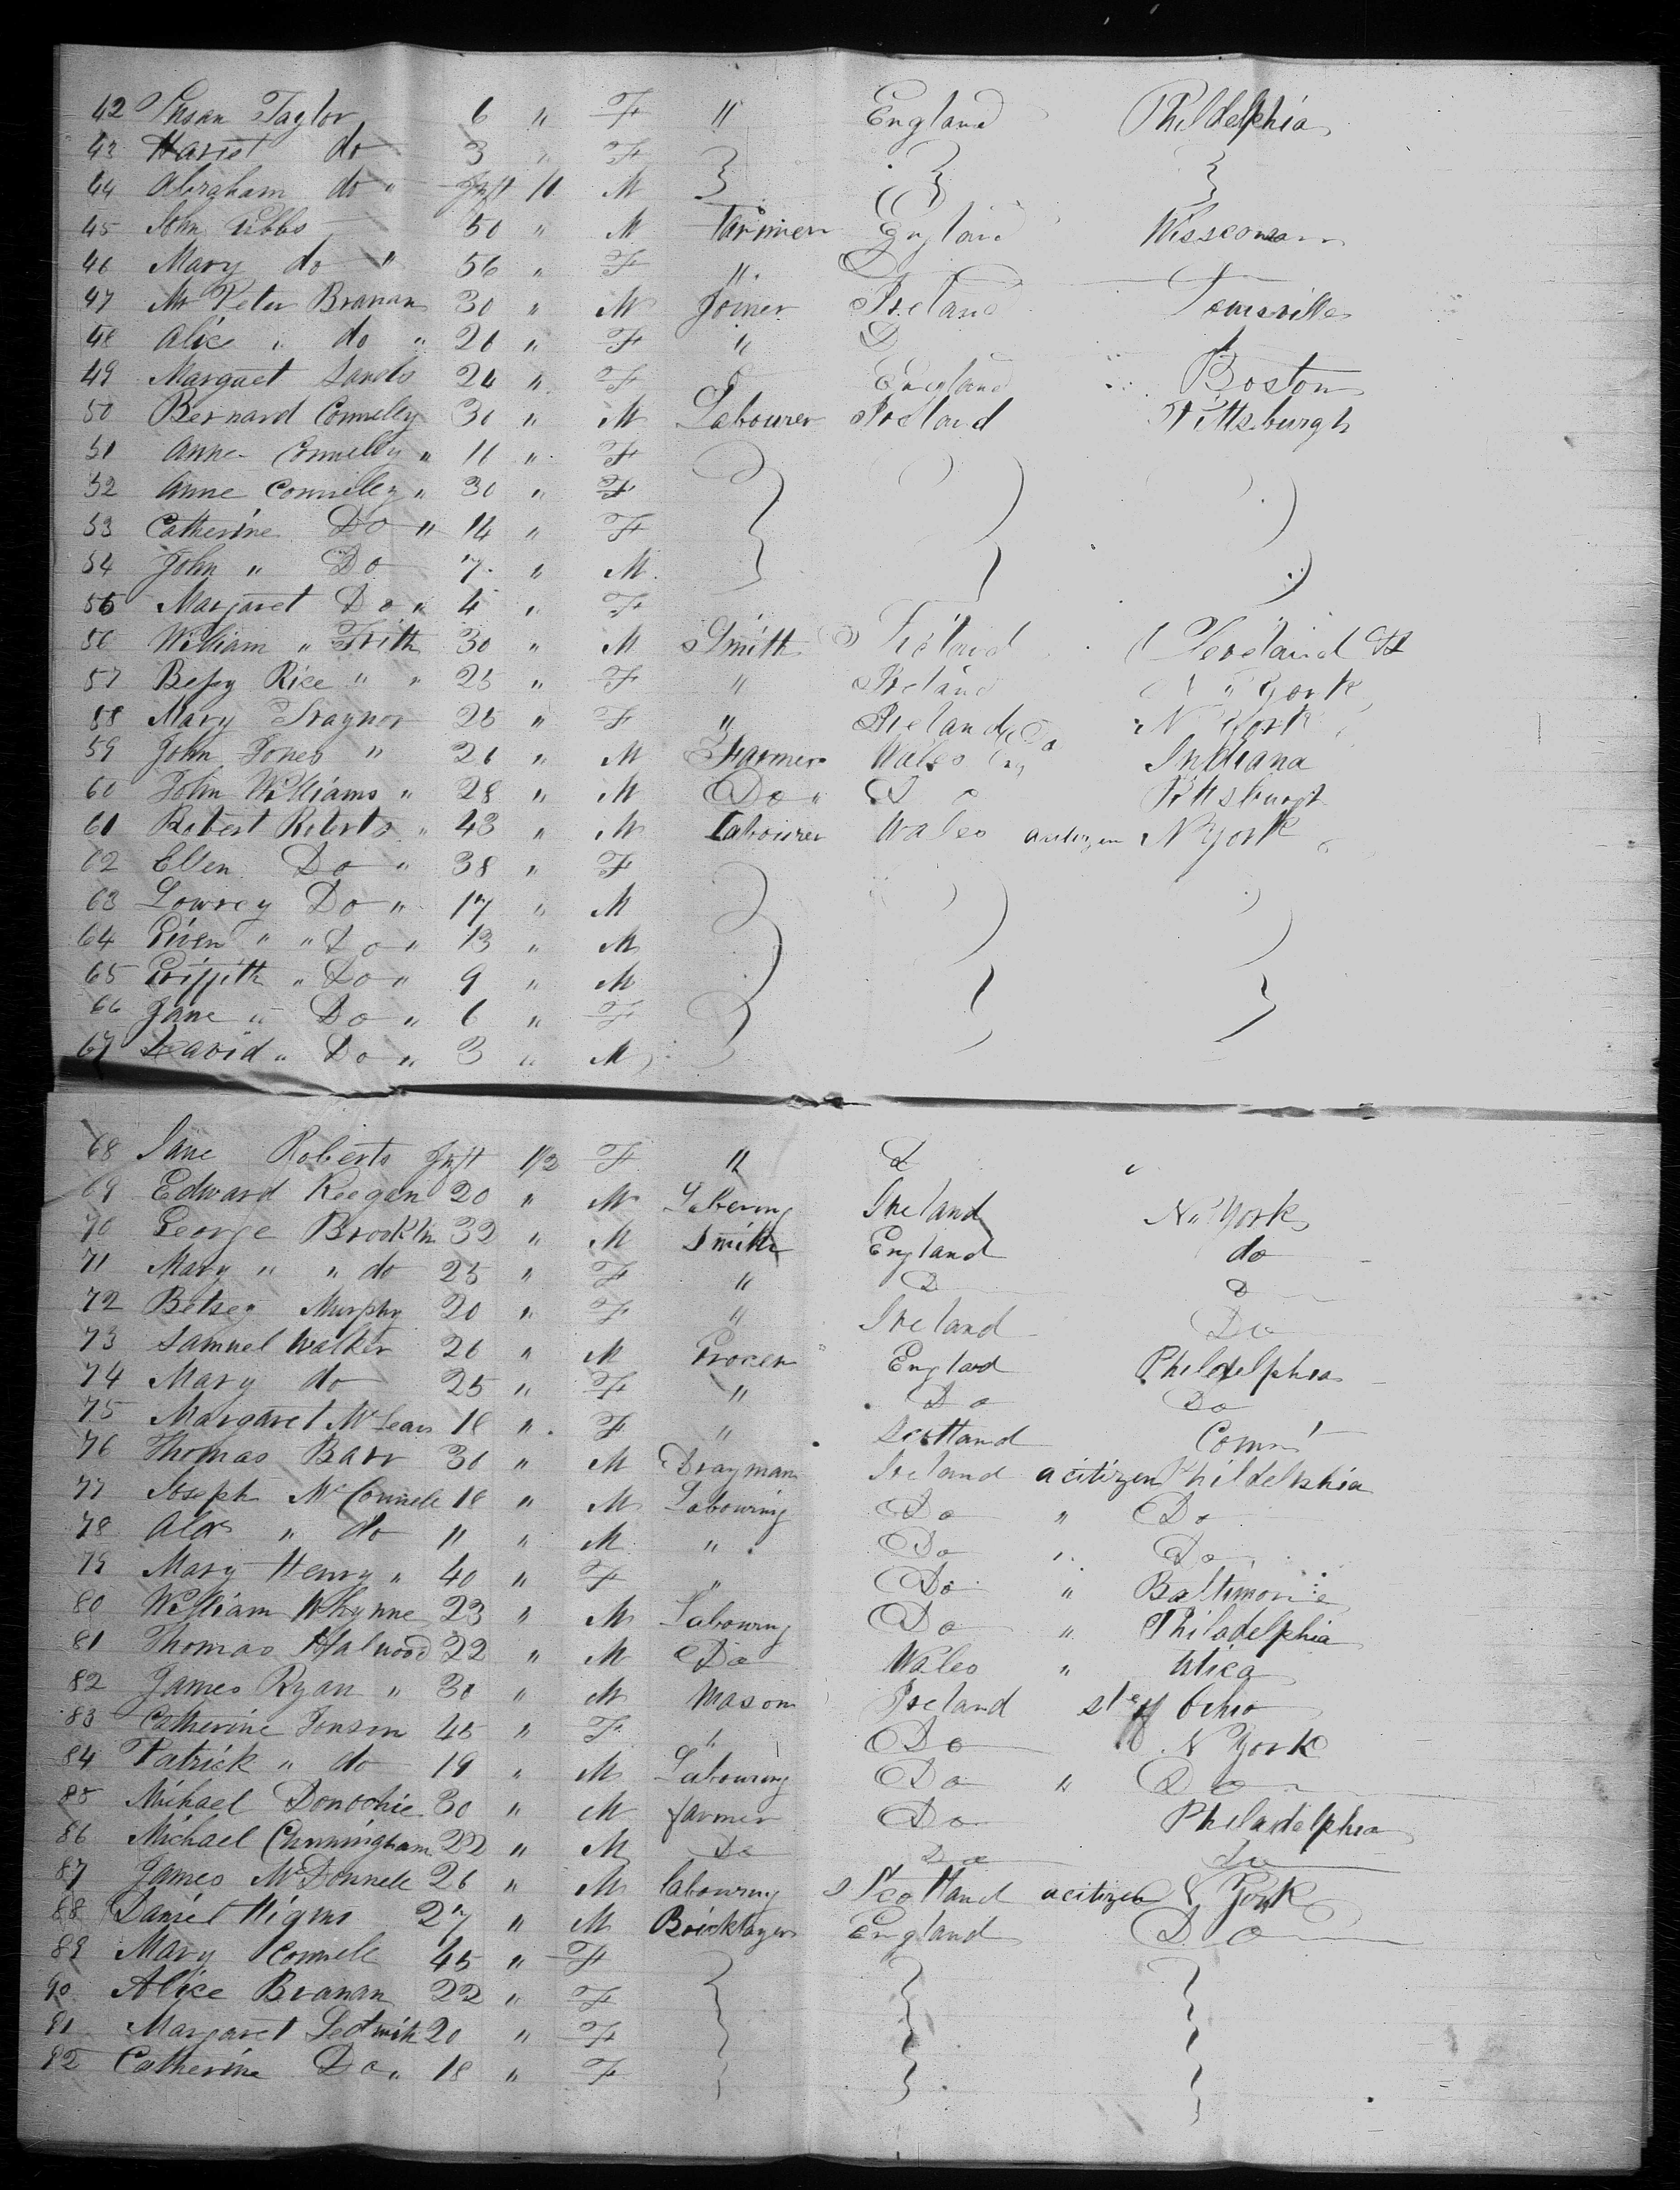 42 Susan Taylor 6 " F " England Phildelphia
43 Hariet do 3 " F
44 Abrgham do " Inft 11 M
45 John 50 " M Farmer England Wissconsan
46 Mary do " 56 " F " D
47 Mr Peter Branan 30 " M Joiner Ireland
48 Alice " do " 26 " F " D
49 Margaet Sands 24 " F " England Boston
50 Bernard Connelly 30 " M Labourer Ireland Pittsburgh
51 Anne Connelly " 11 " F
52 Anne Connelly " 30 " F
53 Catherine Do " 14 " F
54 John " Do 7 " M
55 Margaret Do " 4 " F
56 William " Frith 30 " M Smith Ireland Cleveland
57 Bessy Rice " " 25 " F " Ireland N " York
58 Mary Traynor 25 " F " Ireland N York
59 John Jones " 26 " M Farmer Wales Indiana
60 John Williams " 28 " M Do " D o Pittsburgh
61 Robert Roberts " 43 " M Labourer Wales acitizen N York
62 Ellen Do " 38 " F
63 Lowrey Do " 17 " M
64 " " Do " 13 " M
65 Griffith " Do " 9 " M
66 Jane " Do " 6 " F
67 David " Do " 3 " M
68 Jane Roberts Inft 1/2 F " D "
69 Edward Keegan 20 " M Labering Ireland N " York
70 George 32 " M Smith England do
71 Mary " " do 25 " F " D D
72 Betsey Murphy 20 " F " Ireland Do
73 Samuel Walker 26 " M Grocer England Phildelphia
74 Mary do 25 " F " Do Do
75 Margaret McLean 18 " F " Scotland
76 Thomas Barr 30 " M Drayman Ireland a citizen Phildelphia
77 Joseph McConnele 18 " M Labouring Do " Do
78 Alexr " do 11 " M " Do " Do
79 Mary Henry " 40 " F " Do " Baltimore
80 William Whynne 23 " M Labouring Do " Philadelphia
81 Thomas Halwood 22 " M Do Wales " Utica
82 James Ryan " 30 " M Mason Ireland ste of Ohio
83 Catherine Jonson 45 " F " Do N York
84 Patrick " do 19 " M Labouring Do " Do
85 Michael Donochie 30 " M farmer Do Philadelphia
86 Michael Cunningham 22 " M Do Do do
87 James McDonnele 26 " M labouring Scotland acitizen N York
88 Daniel Higins 27 " M Bricklayer England Do
89 Mary Connele 45 " F
90 Alice Branan 22 " F
91 Margaret Ledwith 20 " F
92 Catherine Do " 18 " F